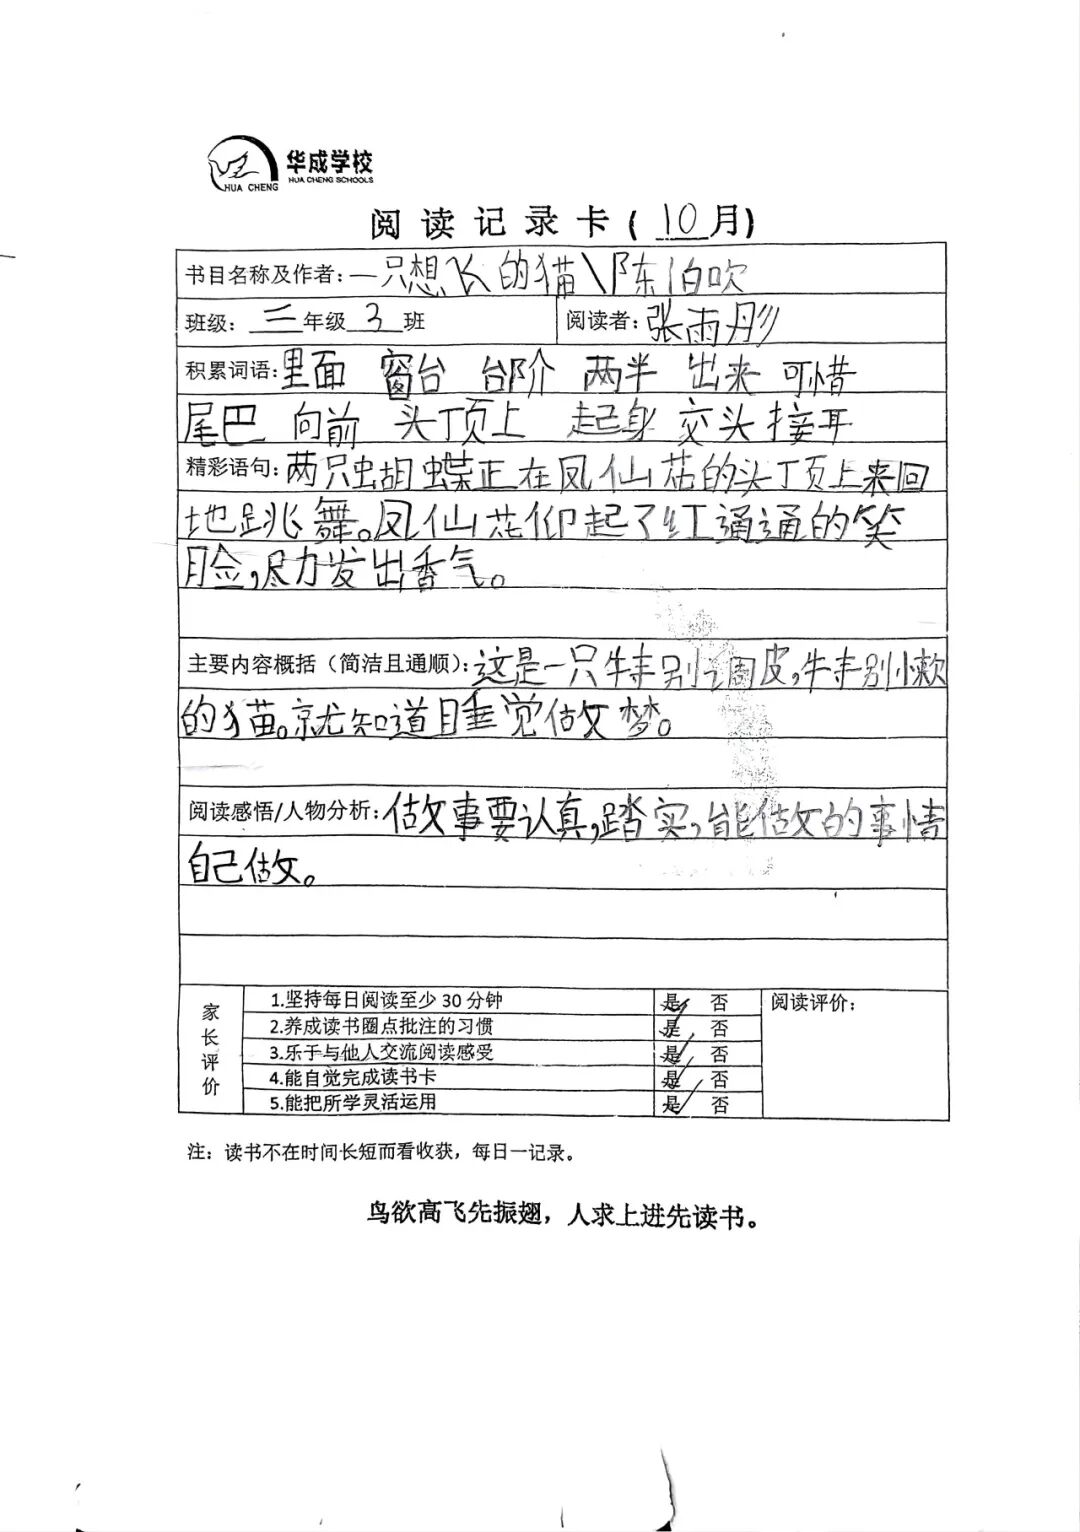 华成学校
HUA CHENG SCHOOLS
HUA CHENG
阅读记录卡(10月)
书目名称及作者:一只想飞的猫\陈伯吹
班级:三年级3班 阅读者:张雨彤
积累词语:里面 窗台 台阶 两半 出来 可惜
尾巴 向前 头顶上 起身 交头接耳
精彩语句:两只蝴蝶正在凤仙花的头顶上来回
地跳舞。凤仙花仰起了红通通的笑
脸,尽力发出香气。
主要内容概括(简洁且通顺):这是一只特别调皮,特别懒
的猫。就知道睡觉做梦。
阅读感悟/人物分析:做事要认真,踏实,能做的事情
自己做。
家长评价
1.坚持每日阅读至少30分钟 是 否 阅读评价:
2.养成读书圈点批注的习惯 是 否
3.乐于与他人交流阅读感受 是 否
4.能自觉完成读书卡 是 否
5.能把所学灵活运用 是 否
注:读书不在时间长短而看收获,每日一记录。
鸟欲高飞先振翅,人求上进先读书。